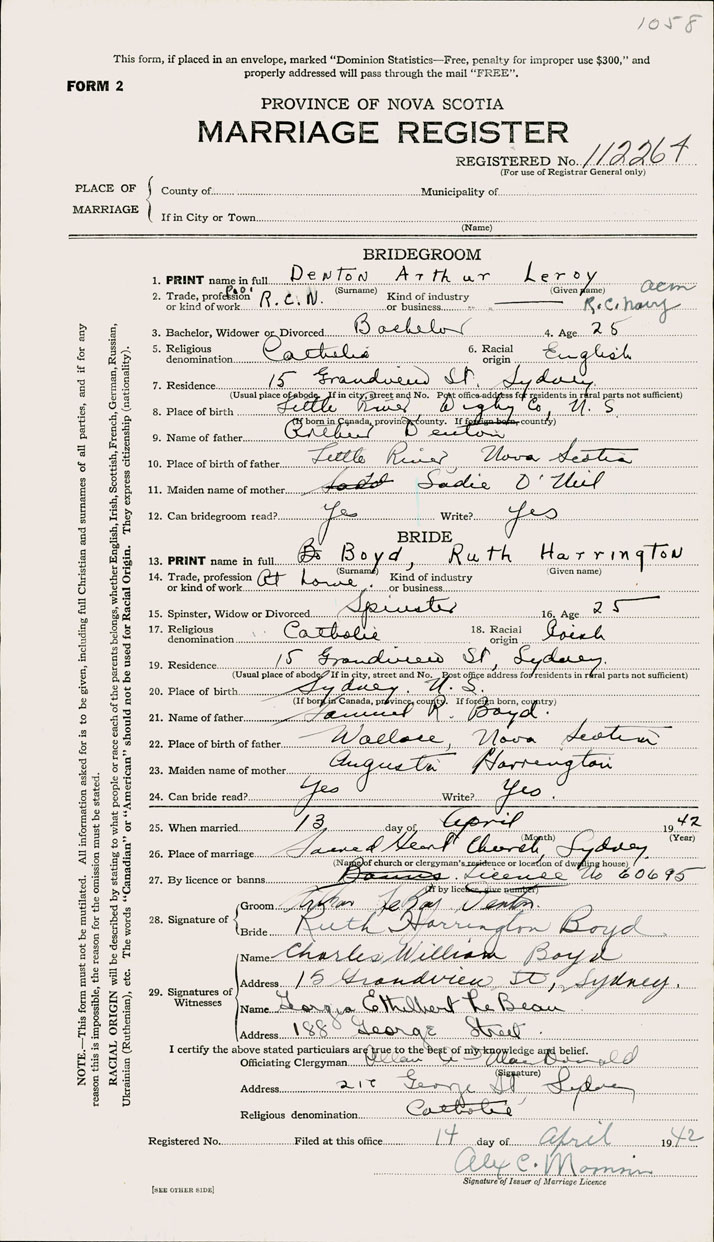 1058
This form, if placed in an envelope, marked "Dominion Statistics—Free, penalty for improper use $300," and
properly addressed will pass through the mail "FREE".
FORM 2
PROVINCE OF NOVA SCOTIA
MARRIAGE REGISTER
REGISTERED No. 112264
(For use of Registrar General only)
PLACE OF MARRIAGE
County of Municipality of
If in City or Town
(Name)
BRIDEGROOM
1. PRINT name in full Denton Arthur Leroy
(Surname) (Given name)
2. Trade, profession or kind of work R.C.N. Kind of industry or business R.C. Navy
3. Bachelor, Widower or Divorced Bachelor 4. Age 25
5. Religious denomination Catholic 6. Racial origin English
7. Residence 15 Grandview St. Sydney
(Usual place of abode. If in city, street and No. Post office address for residents in rural parts not sufficient)
8. Place of birth Little River, Digby Co, N. S.
(If born in Canada, province, county. If foreign born, country)
9. Name of father Arthur Denton
10. Place of father Little River Nova Scotia
11. Maiden name of mother Sadie O'Neil
12. Can bridegroom read? Yes Write? Yes
BRIDE
13. PRINT name in full Bo Boyd, Ruth Harrington
(Surname) (Given name)
14. Trade, profession or kind of work At home. Kind of industry or business
15. Spinster, Widow or Divorced Spinster 16. Age 25
17. Religious denomination Catholic 18. Racial origin Irish
19. Residence 15 Grandview St, Sydney.
(Usual place of abode. If in city, street and No. Post office address for residents in rural parts not sufficient)
20. Place of birth Sydney. N. S.
(If born in Canada, province, county. If foreign born, country)
21. Name of father Samuel R. Boyd.
22. Place of birth of father Wallace, Nova Scotia
23. Maiden name of mother Augusta Harrington
24. Can bride read? Yes Write? Yes.
25. When married 13 day of April 1942
(Month) (Year)
26. Place of marriage Sacred Heart Church, Sydney
(Name of church or clergyman's residence or location of dwelling house)
27. By licence or banns Banns. License No 60695
(If by license, give number)
28. Signature of
Groom Arthur LeRoy Denton.
Bride Ruth Harrington Boyd.
29. Signatures of Witnesses
Name Charles William Boyd
Address 15 Grandview St, Sydney.
Name Georgia Ethelbert LeBeau
Address 188 George Street.
I certify the above stated particulars are true to the best of my knowledge and belief.
Officiating Clergyman MacDonald
(Signature)
Address George St Sydney
Religious denomination Catholic
Registered No. Filed at this office 14 day of April 1942
Alex C.
Signature of Issuer of Marriage Licence
[SEE OTHER SIDE]
NOTE.—This form must not be mutilated. All information asked for is to be given, including full Christian and surnames of all parties, and if for any
reason this is impossible, the reason for the omission must be stated.
RACIAL ORIGIN will be described by stating to what people or race each of the parents belongs, whether English, Irish, Scottish, French, German, Russian,
Ukrainian (Ruthenian), etc. The words "Canadian" or "American" should not be used for Racial Origin. They express citizenship (nationality).